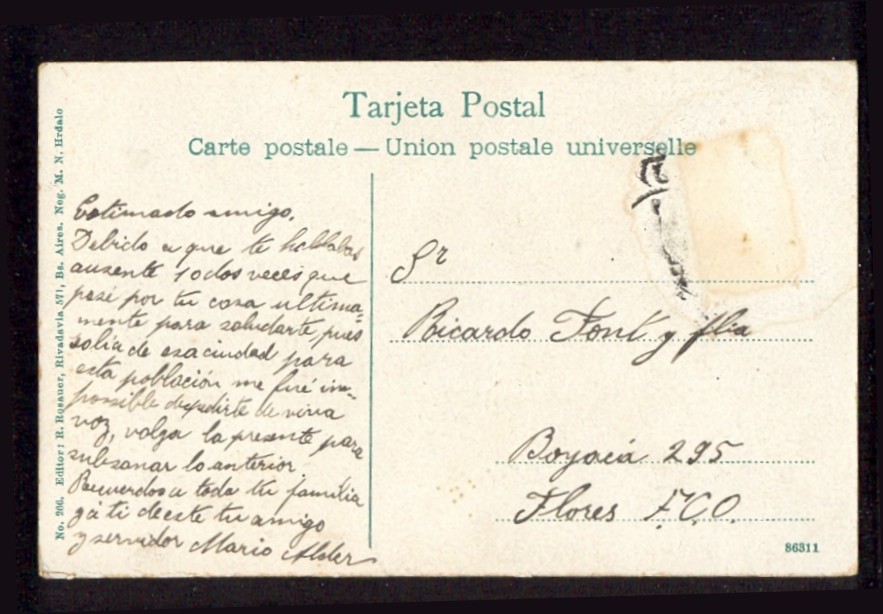 Tarjeta Postal
Carte postale — Union postale universelle
No. 206. Editor: R. Rosauer, Rivadavia 571, Bs. Aires. Neg. M. N. Hrdalo
Estimado amigo.
Debido a que te hallabas
ausente 1 o dos veces que
pasé por tu casa ultima-
mente para saludarte, pues
salía de esa ciudad para
esta población me fué im-
possible despedirte de viva
voz, valga la presente para
subsanar lo anterior.
Recuerdos a toda tu familia
y á ti de este tu amigo
y servidor Mario Alder
Sr
Ricardo Font y flia
Boyacá 295
Flores F.C.O.
86311